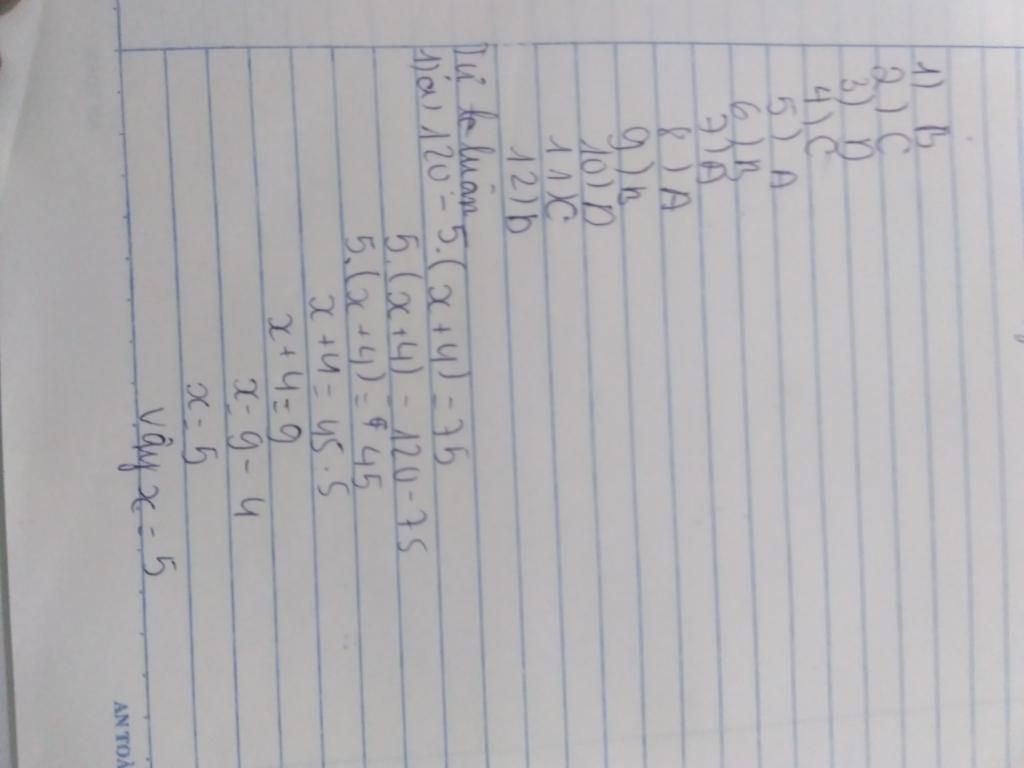 1) B
2) C
3) D
4) C
5) A
6) B
7) A
8) A
9) B
10) D
11) C
12) D
Tự luận
1) a) 120 - 5.(x+4) = 75
5.(x+4) = 120-75
5.(x+4) = 45
x+4 = 45:5
x+4=9
x = 9-4
x = 5
Vậy x = 5
ANTOÀ